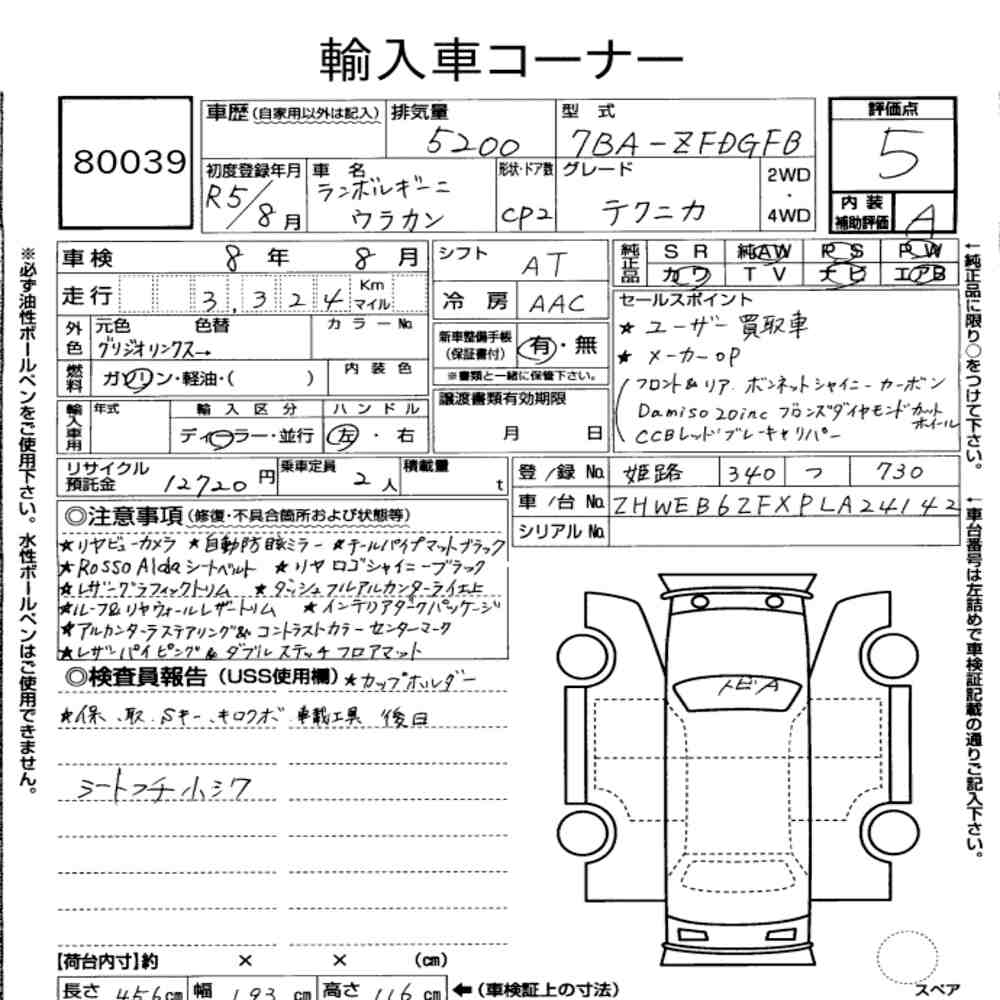 輸入車コーナー
80039
車歴(自家用以外は記入)
排気量
5200
型 式
7BA-ZFDGFB
評価点
5
初度登録年月
R5/8月
車 名
ランボルギーニ
ウラカン
形状・ドア数
CP2
グレード
テクニカ
2WD
・
4WD
内 装
補助評価
A
車検 8年 8月
シフト
AT
純正品
SR 純AW PS PW
カワ TV ナビ エアB
走行 3,324 Km マイル
冷 房 AAC
セールスポイント
★ ユーザー買取車
★ メーカーOP
フロント&リア ボンネットシャイニーカーボン
Damiso 20inc ブロンズダイヤモンドカット
ホイール
CCBレッドブレーキキャリパー
外色
元色 色替
グリジオリンクス→
カラーNo.
新車整備手帳
(保証書付)
有・無
※書類と一緒に保管下さい。
燃料
ガソリン・軽油・( )
内 装 色
譲渡書類有効期限
月 日
輸入車用
年式
輸 入 区 分
ディーラー・並行
ハ ン ド ル
左 ・ 右
リサイクル
預託金
12720円
乗車定員
2人
積載量
t
登/録No. 姫路 340 つ 730
車/台No. ZHWEB6ZFXPLA24142
シリアルNo.
◎注意事項(修復・不具合箇所および状態等)
★リヤビューカメラ ★自動防眩ミラー ★テールパイプマットブラック
★Rosso Aldaシートベルト ★リヤロゴシャイニーブラック
★レザーグラフィックトリム ★ダッシュフルアルカンターライエ止
★ルーフ&リヤウォールレザートリム ★インテリアダークパッケージ
★アルカンターラステアリング& コントラストカラーセンターマーク
★レザーパイピング&ダブルステッチフロアマット
◎検査員報告(USS使用欄)★カップホルダー
★保、取、Sキー、キロクボ、車載工具 後日
シートフチ小シワ
トビA
【荷台内寸】約 × × (cm)
長さ 456cm 幅 193cm 高さ 116cm ←(車検証上の寸法)
スペア
※必ず油性ボールペンをご使用下さい。水性ボールペンはご使用できません。
←純正品に限り○をつけて下さい。
←車台番号は左詰めで車検証記載の通りご記入下さい。